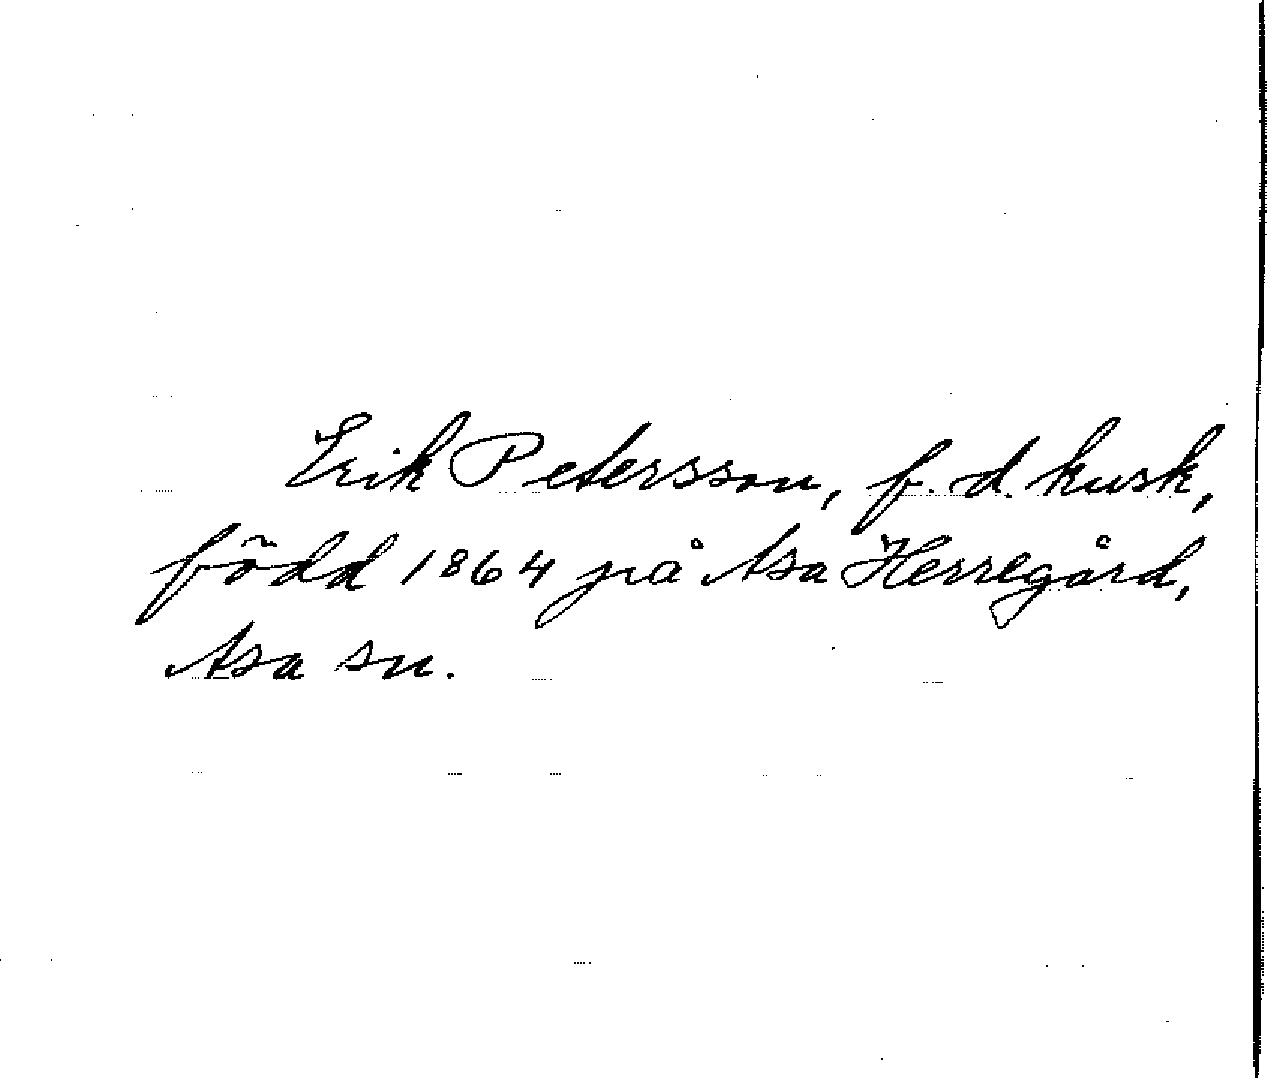 Erik Petersson, f. d. kusk,
född 1864 på Asa Herregård,
Asa sn.